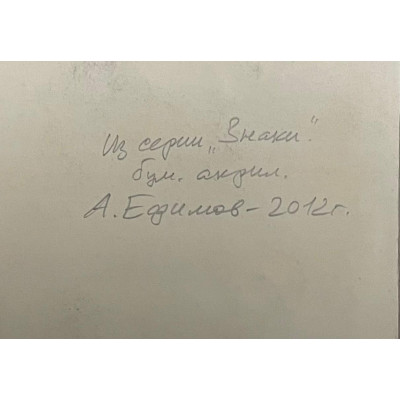 Из серии „Знаки".
бум. акрил.
А. Ефимов - 2012г.